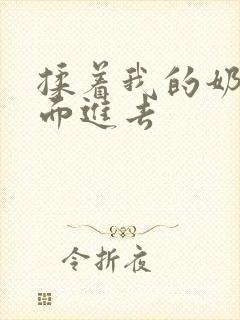 揉着我的奶
而進去
令折夜